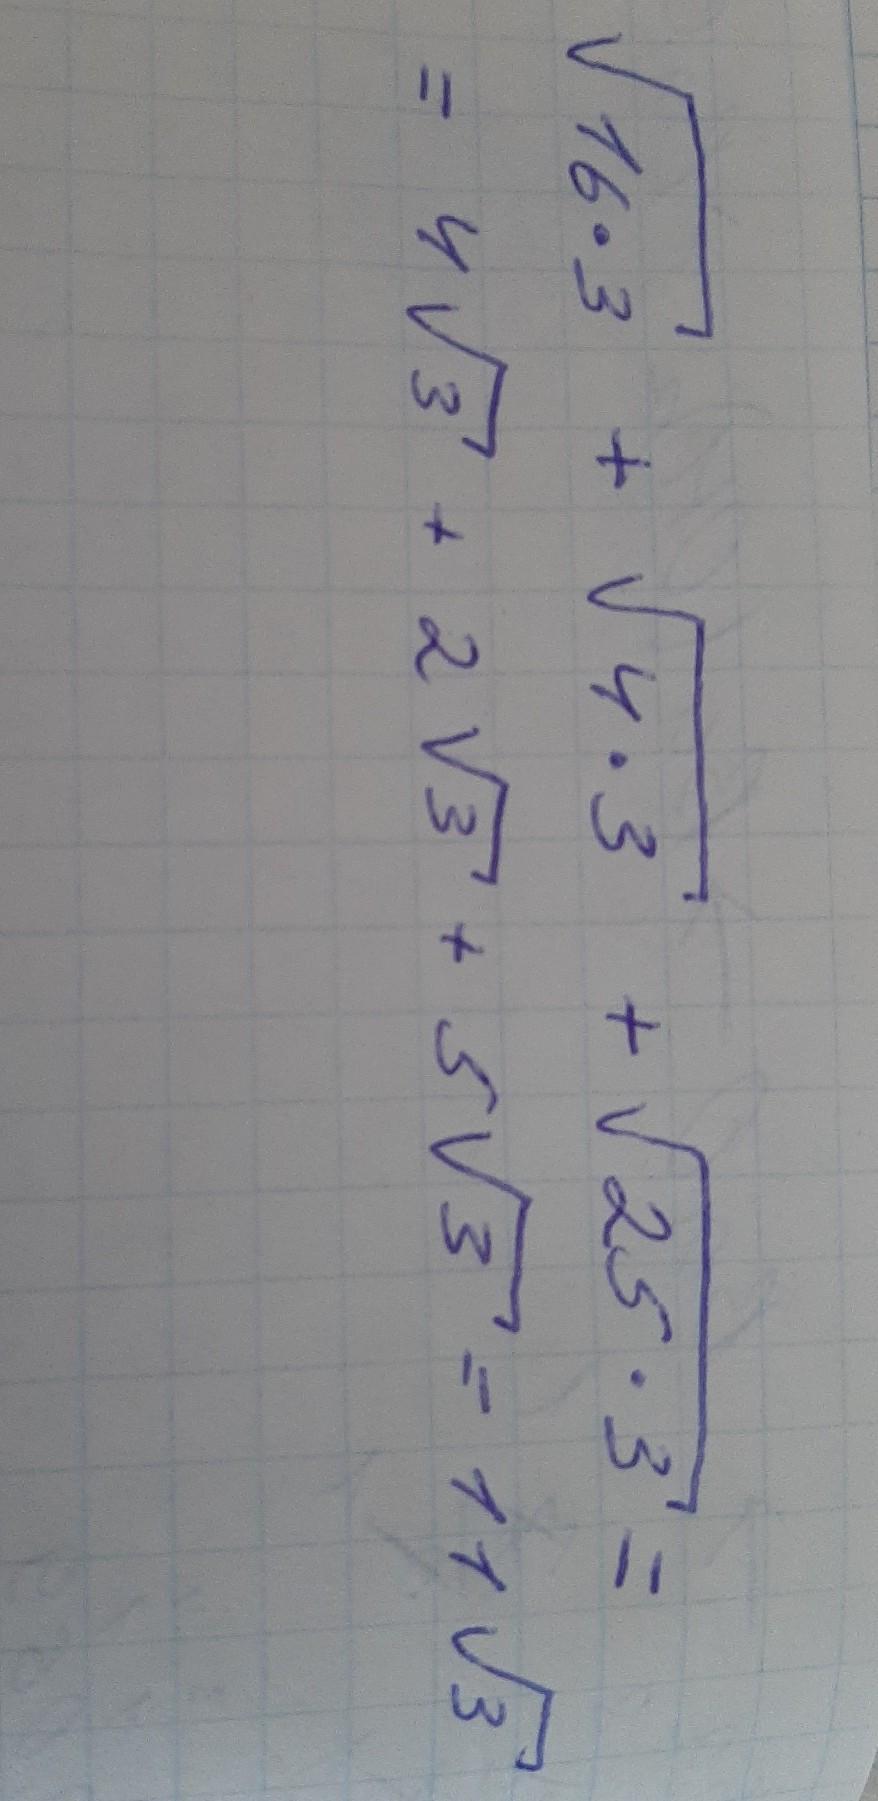 √16·3 + √4·3 + √25·3 =
= 4√3 + 2√3 + 5√3 = 11√3